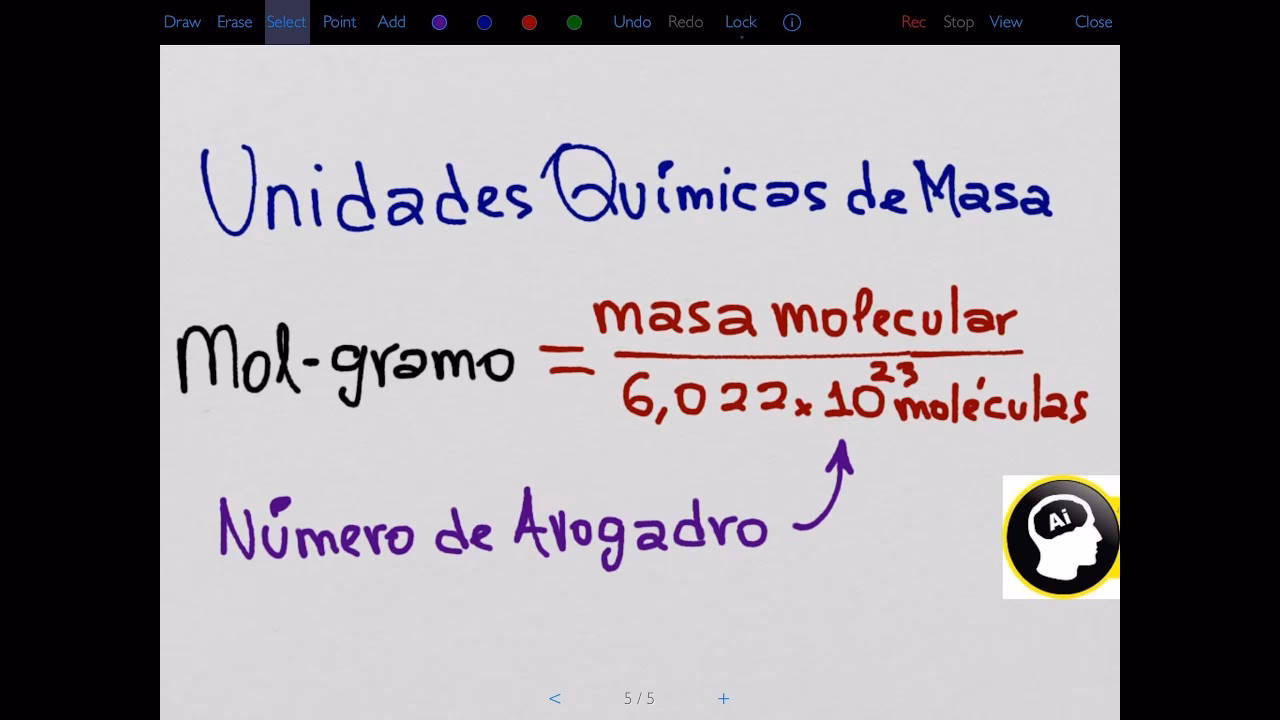 Draw Erase Select Point Add Undo Redo Lock i Rec Stop View Close
Unidades Químicas de Masa
Mol-gramo = masa molecular
6,022 x 10²³ moléculas
Número de Avogadro
Ai
< 5 / 5 +